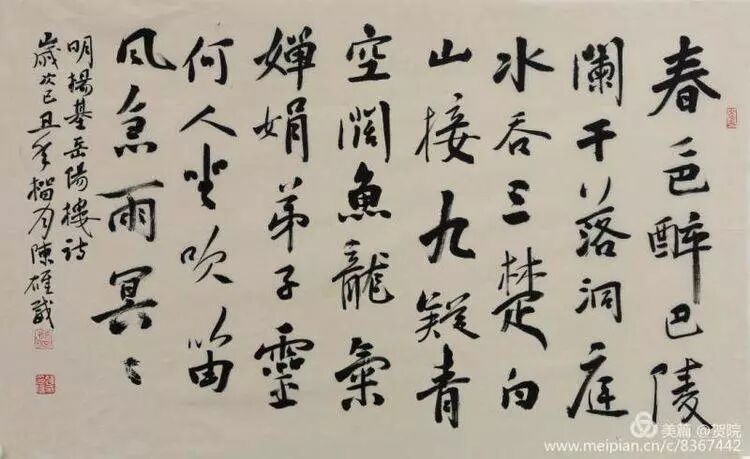 春色醉巴陵
闌干落洞庭
水吞三楚白
山接九疑青
空闊魚龍氣
嬋娟弟子靈
何人坐吹笛
风急雨冥〻
明楊基岳陽樓詩
歲次己丑年榴月陳雄
美篇 @贺院
www.meipian.cn/c/8367442